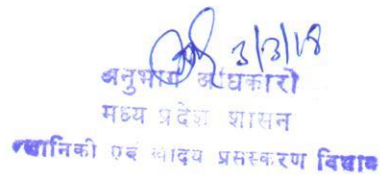 3/3/18
अनुभाग अधिकारी
मध्य प्रदेश शासन
उद्यानिकी एवं खाद्य प्रसंस्करण विभाग